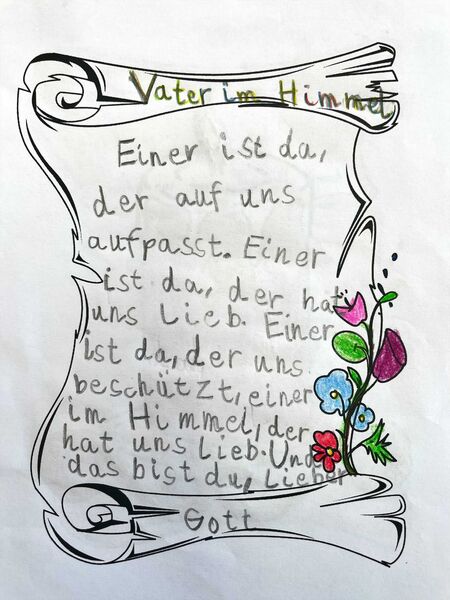 Vater im Himmel
Einer ist da,
der auf uns
aufpasst. Einer
ist da, der hat
uns Lieb. Einer
ist da, der uns
beschützt, einer
im Himmel, der
hat uns Lieb. Und
das bist du, Lieber
Gott